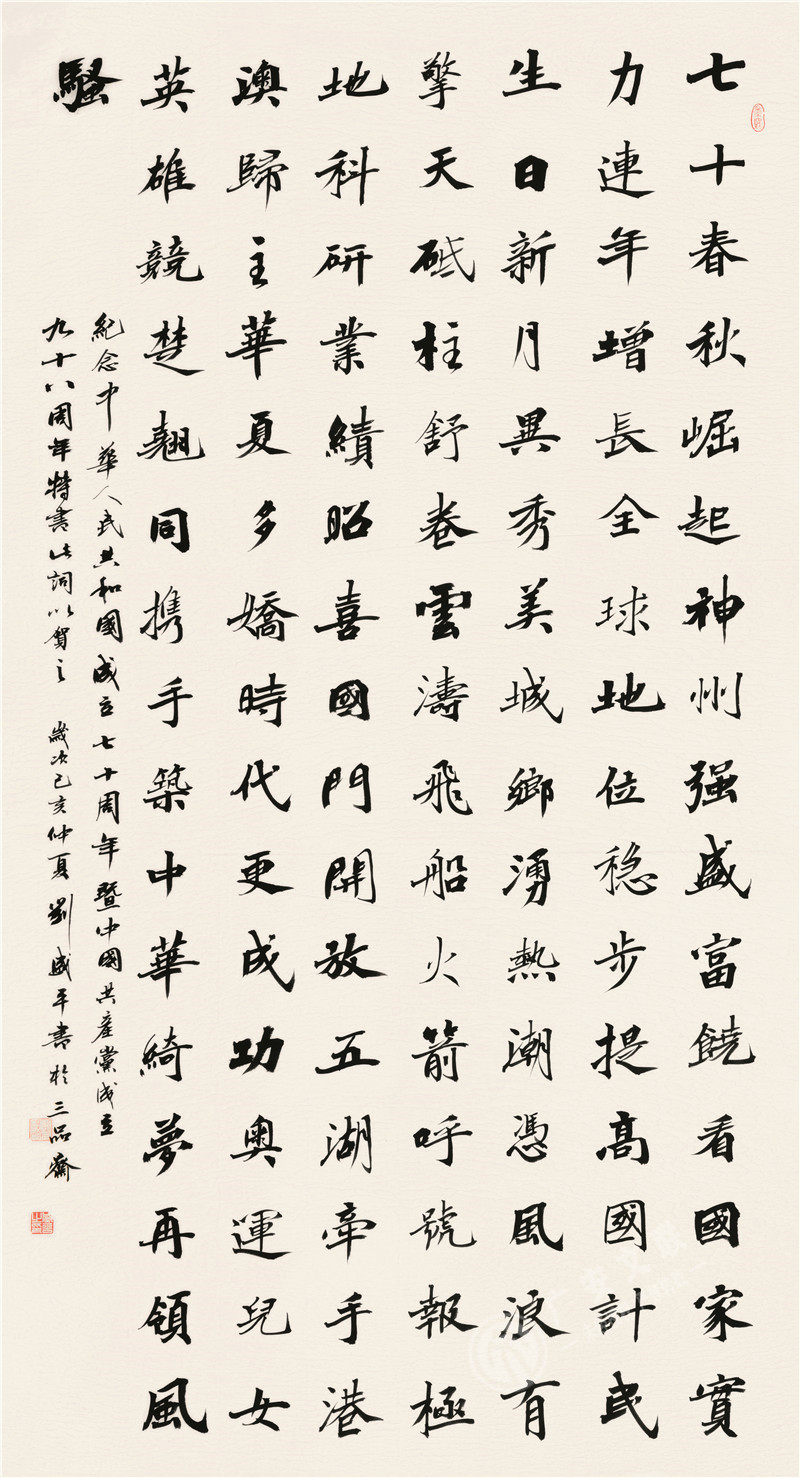 七十春秋崛起神州强盛富饒看國家實
力連年增長全球地位穩步提高國計民
生日新月異秀美城鄉湧熱潮憑風浪有
擎天砥柱舒卷雲濤飛船火箭呼號報極
地科研業績昭喜國門開放五湖牽手港
澳歸主華夏多嬌時代更成功奧運兒女
英雄競楚翹同携手築中華綺夢再領風
騷
紀念中華人民共和國成立七十周年暨中國共産黨成立
九十八周年特書此詞以賀之 歲次己亥仲夏劉盛平書於三品齋